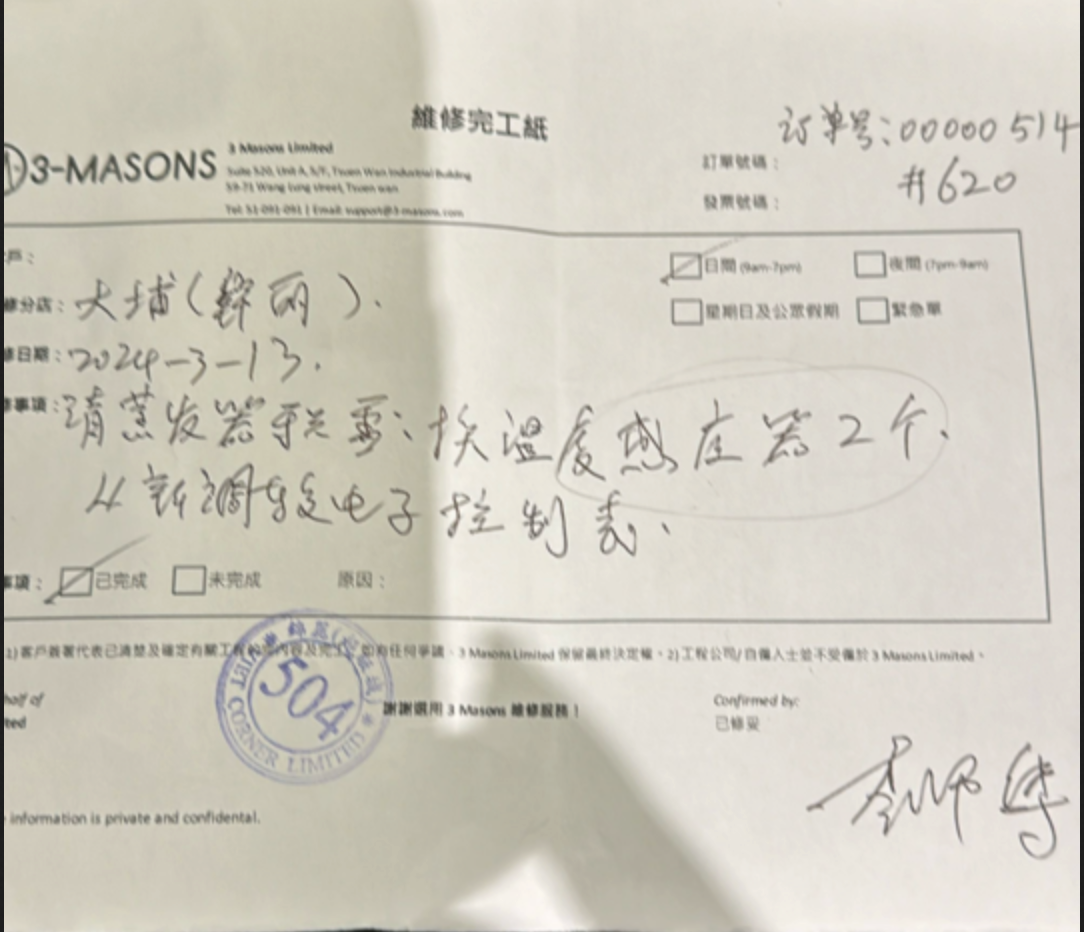 維修完工紙
3-MASONS
3 Masons Limited
Suite 520, Unit A, 5/F, Tsuen Wan Industrial Building
59-71 Wang Lung street, Tsuen wan
Tel: 51-091-091 | Email: support@3-masons.com
订单号:00000514
訂單號碼:
#620
發票號碼:
戶:
修分店:大埔( )
日間 (9am-7pm)
夜間 (7pm-9am)
星期日及公眾假期
緊急單
修日期:2024-3-13.
事項:清蒸发器 换温度感应器2个、
从新調较电子控制表、
事項:
已完成
未完成
原因:
1) 客戶簽署代表已清楚及確定有關工程 內容及完工。如有任何爭議,3 Masons Limited 保留最終決定權。2) 工程公司/自僱人士並不受僱於 3 Masons Limited。
half of
ted
VIET CORNER LIMITED
504
謝謝選用 3 Masons 維修服務!
Confirmed by:
已修妥
information is private and confidential.